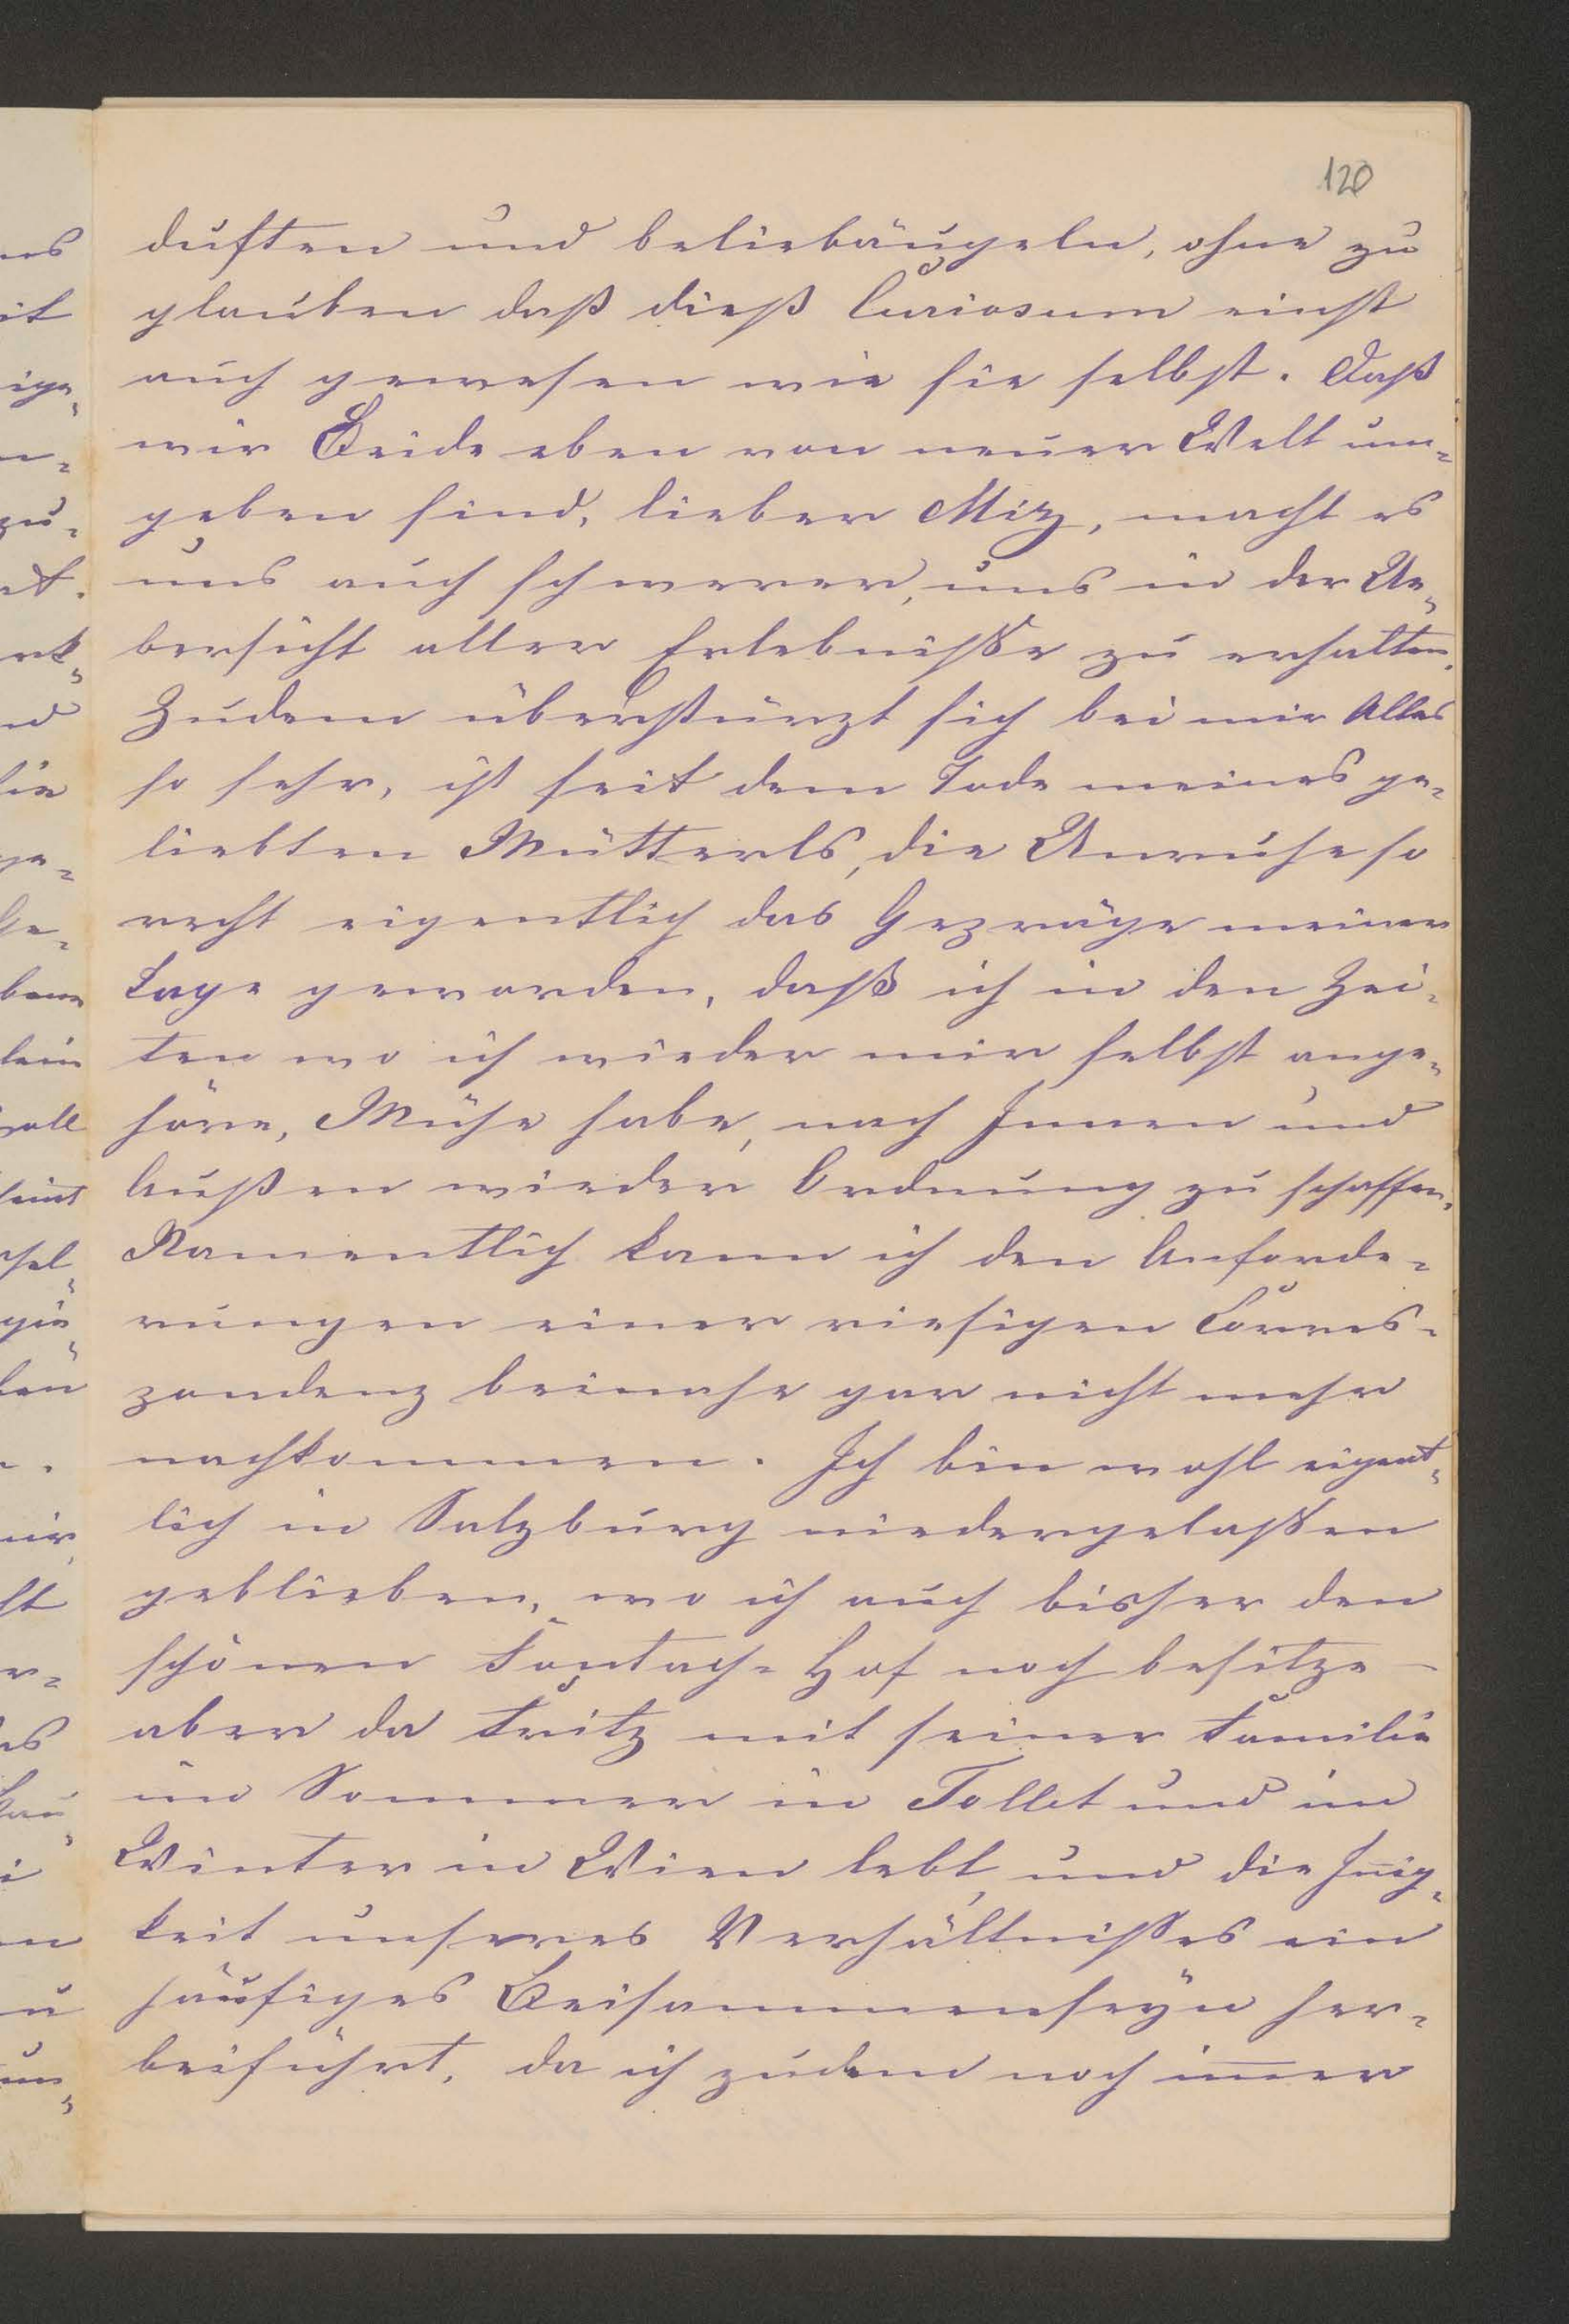 120
duften und beliebäugeln, ohne zu
glauben daß dieß Curiosum einst
auch gewesen wie sie selbst. Daß
wir Beide eben von neuer Welt um-
geben sind, lieber Miz, macht es
uns auch schwerer, uns in der Ue-
bersicht alter Erlebniße zu erhalten.
Zudem überstürzt sich bei mir Alles
so sehr, ist seit dem Tode meines ge-
liebten Mütterls, die Unruhe so
recht eigentlich das Gepräge meiner
Tage geworden, daß ich in den Zei-
ten wo ich wieder mir selbst ange-
höre, Mühe habe, nach Innen und
Außen wieder Ordnung zu schaffen.
Namentlich kann ich den Anforde-
rungen einer riesigen Corres-
pondenz beinahe gar nicht mehr
nachkommen. Ich bin wohl eigent-
lich in Salzburg niedergelaßen
geblieben, wo ich auch bisher den
schönen Hof noch besitze —
aber da Fritz mit seiner Familie
im Sommer in Tollet und im
Winter in Wien lebt, und die Inig-
keit unseres Verhältnißes ein
häufiges Beisammenseyn her-
beiführt, da ich zudem noch imer